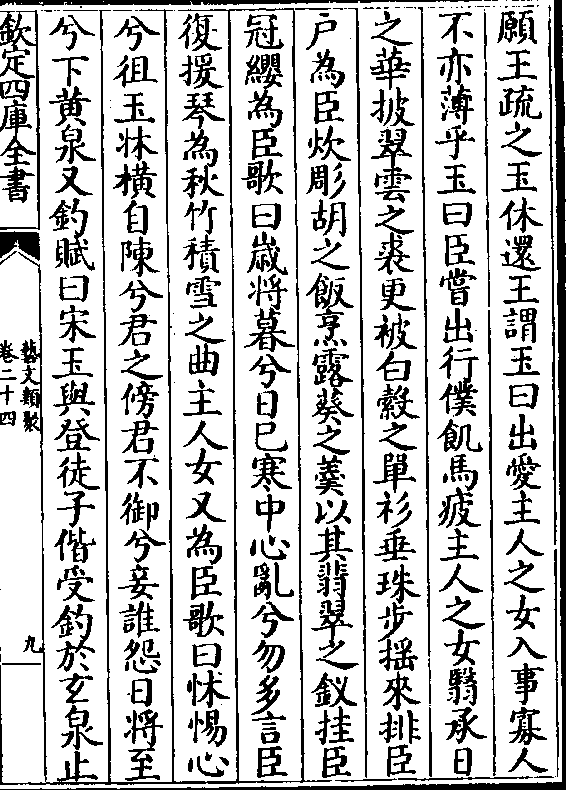 願王疏之玉休還王謂玉曰出愛主人之女入事寡人
不亦薄乎玉曰臣嘗出行僕飢馬疲主人之女翳承日
之華披翠雲之裘更被白縠之單衫垂珠步揺來排臣
户為臣炊彫胡之飯烹露葵之羮以其翡翠之釵挂臣
冠纓為臣歌曰歳将暮兮日已寒中心亂兮勿多言臣
復援琴為秋竹積雪之曲主人女又為臣歌曰怵惕心
兮徂玉牀横自陳兮君之傍君不御兮妾誰怨日將至
兮下黄泉又釣賦曰宋玉與登徒子偕受釣於玄泉止
欽定四庫全書
藝文類聚
卷二十四
九